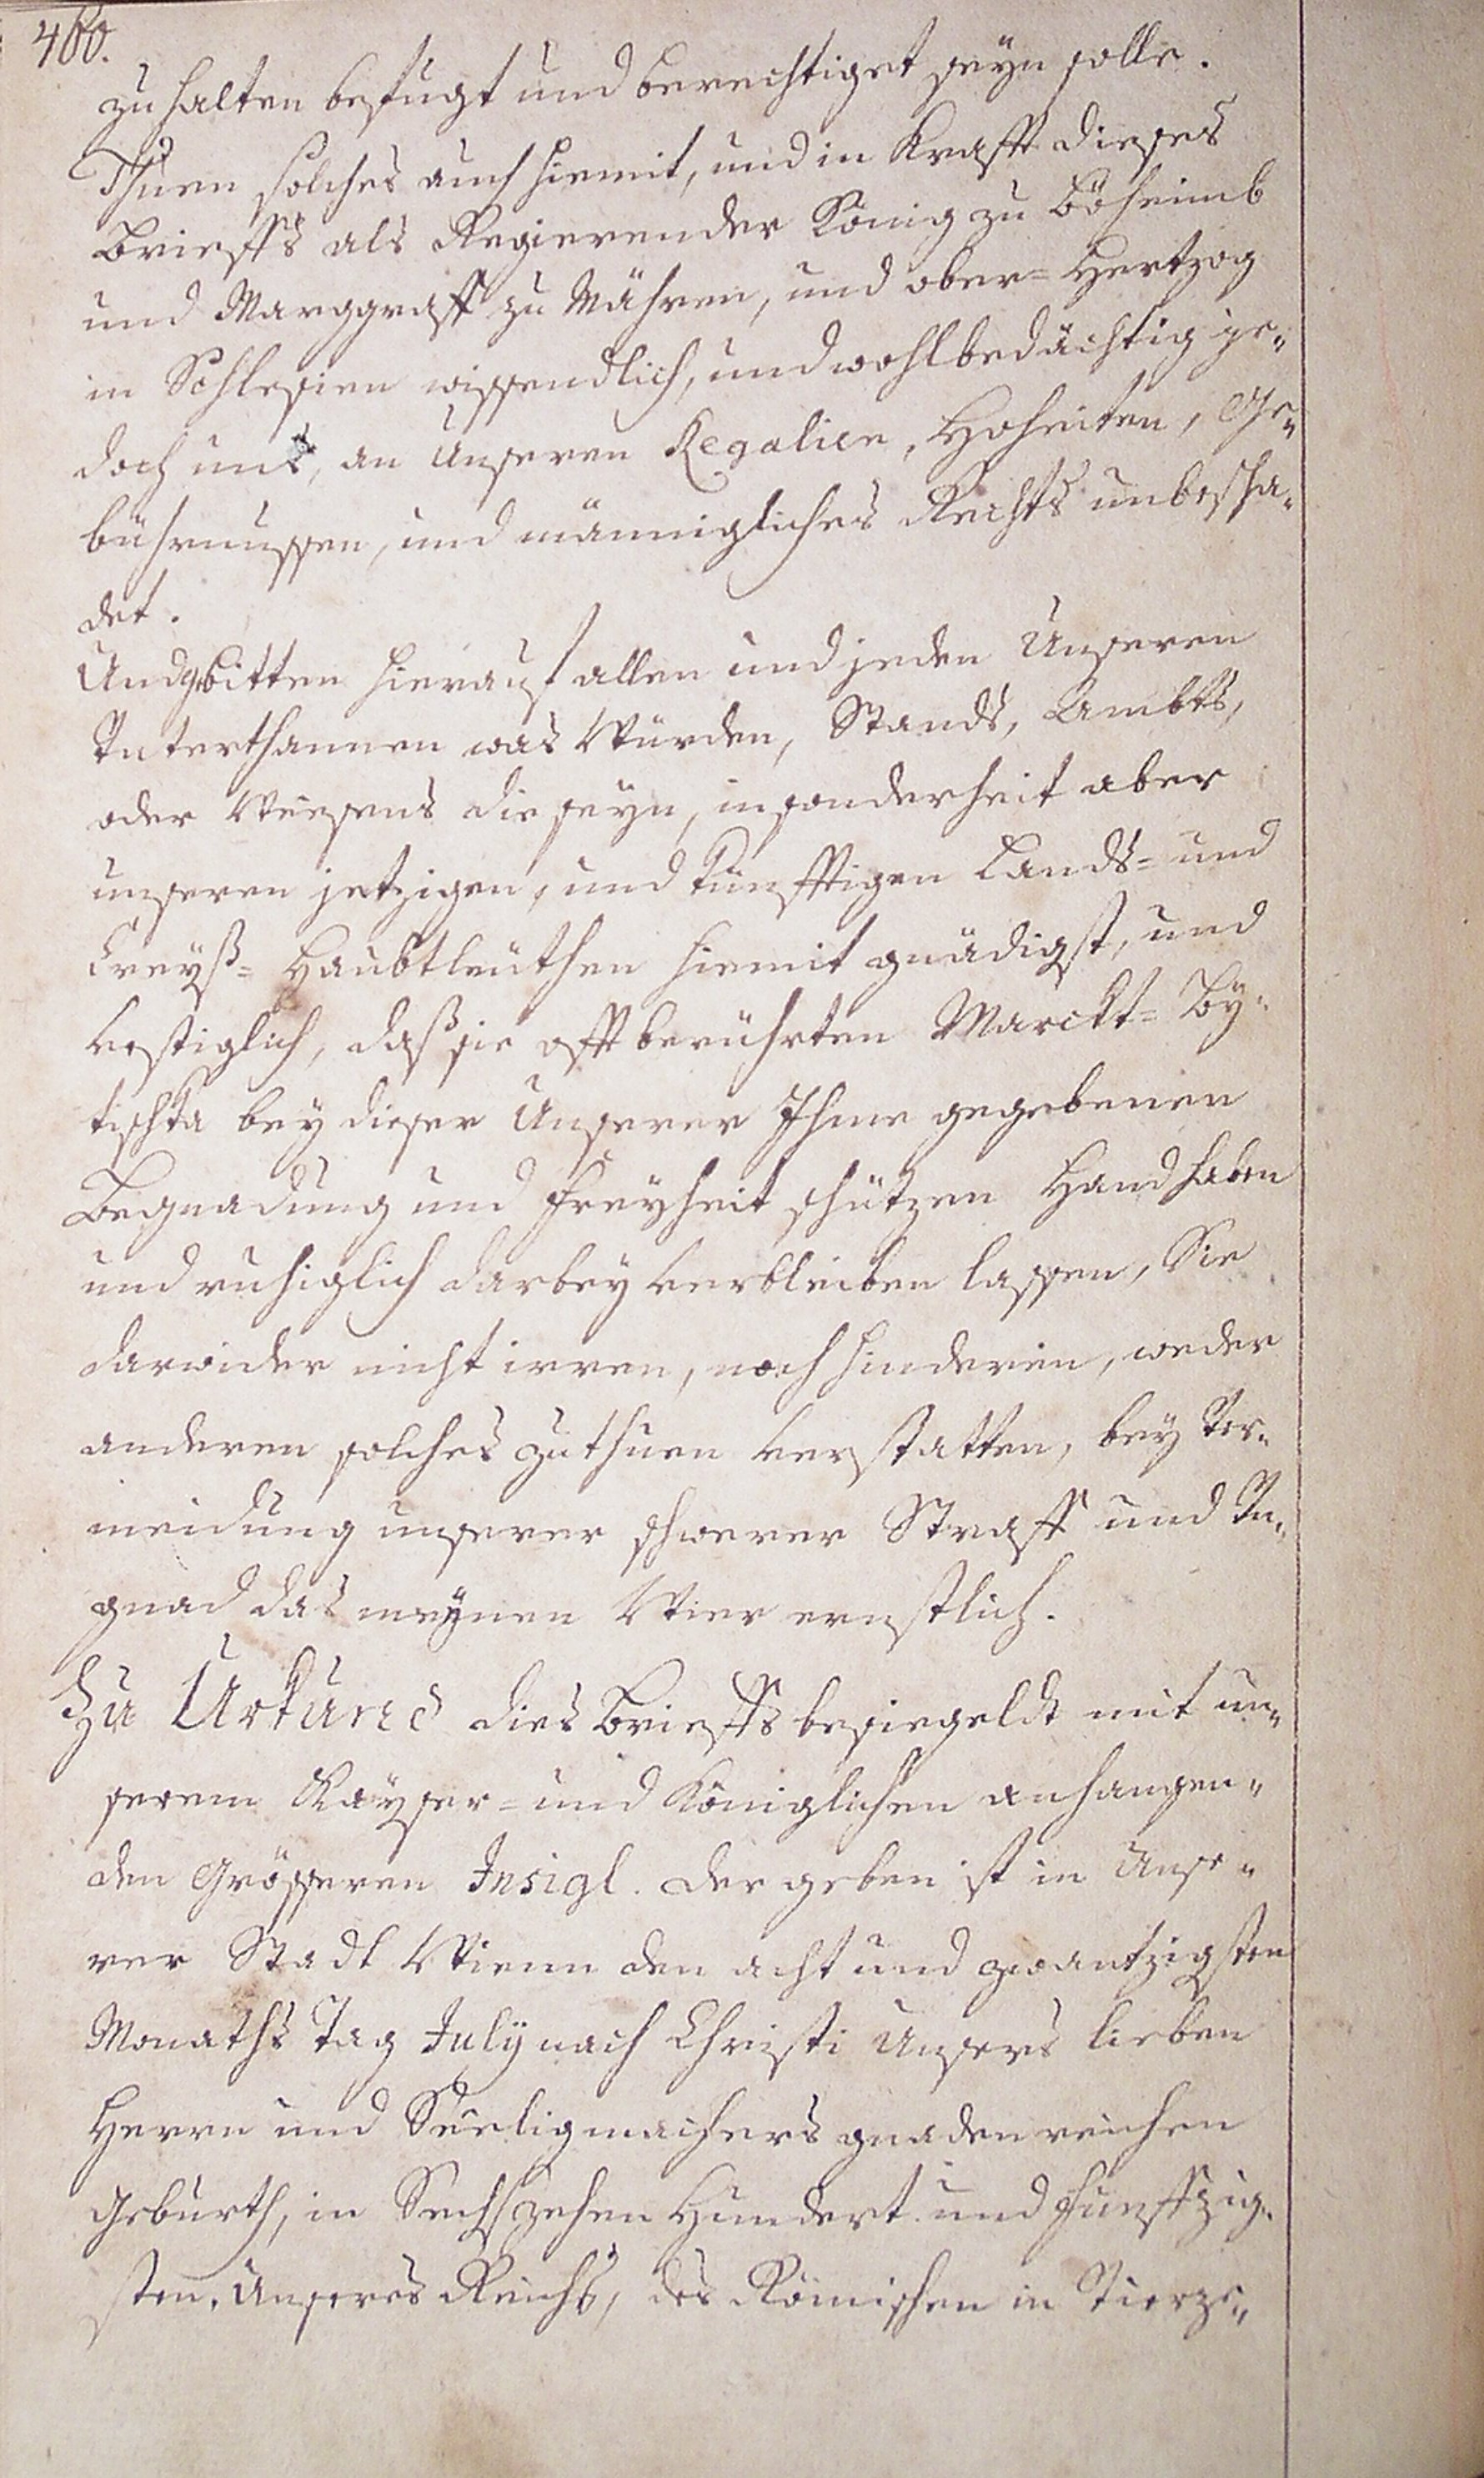 460.
zu halten befugt und berechtiget seyn solle.
Thuen solches auch hiemit, und in Krafft dieses
Brieffs als Regierender König zu Böheimb
und Marggraff zu Mähren, und ober= Hertzog
in Schlesien wissendlich, und wohlbedächtig je„
doch uns, an Unseren Regalien, Hoheiten, Ge„
bührnussen, und männigliches Rechts unbescha„
det.
Und gebitten hierauf allen und jeden Unseren
Unterthannen was Würden, Stands, Ambts,
oder Weesens die seyn, insonderheit aber
unseren jetzigen, und künfftigen Lands= und
Creyß= Haubtleuthen hiemit gnädigst, und
vestiglich, daß sie offt berührten Marckt= By„
tischka bey dieser Unserer Ihme gegebenen
Begnadung und Freyheit schützen Hand haben
und ruhiglich darbey verbleiben lassen, Sie
darwider nicht irren, noch hinderen, weder
anderen solches zuthuen verstatten, bey Ver„
meidung unserer schwerer Straff und Un„
gnad das meynen Wier ernstlich.
Zu Urkund dies Brieffs besiegeldt mit un„
serem Kayser= und Königlichen anhangen„
den Grösseren Insigl. der geben ist in Unse„
rer Stadt Wienn den acht und zwantzigsten
Monaths Tag July nach Christi Unsers lieben
Herrn und Seeligmachers gnadenreichen
Geburth, in Sechszehen Hundert und Funffzig„
sten, Unseres Reichs, des Römischen in Vierze„